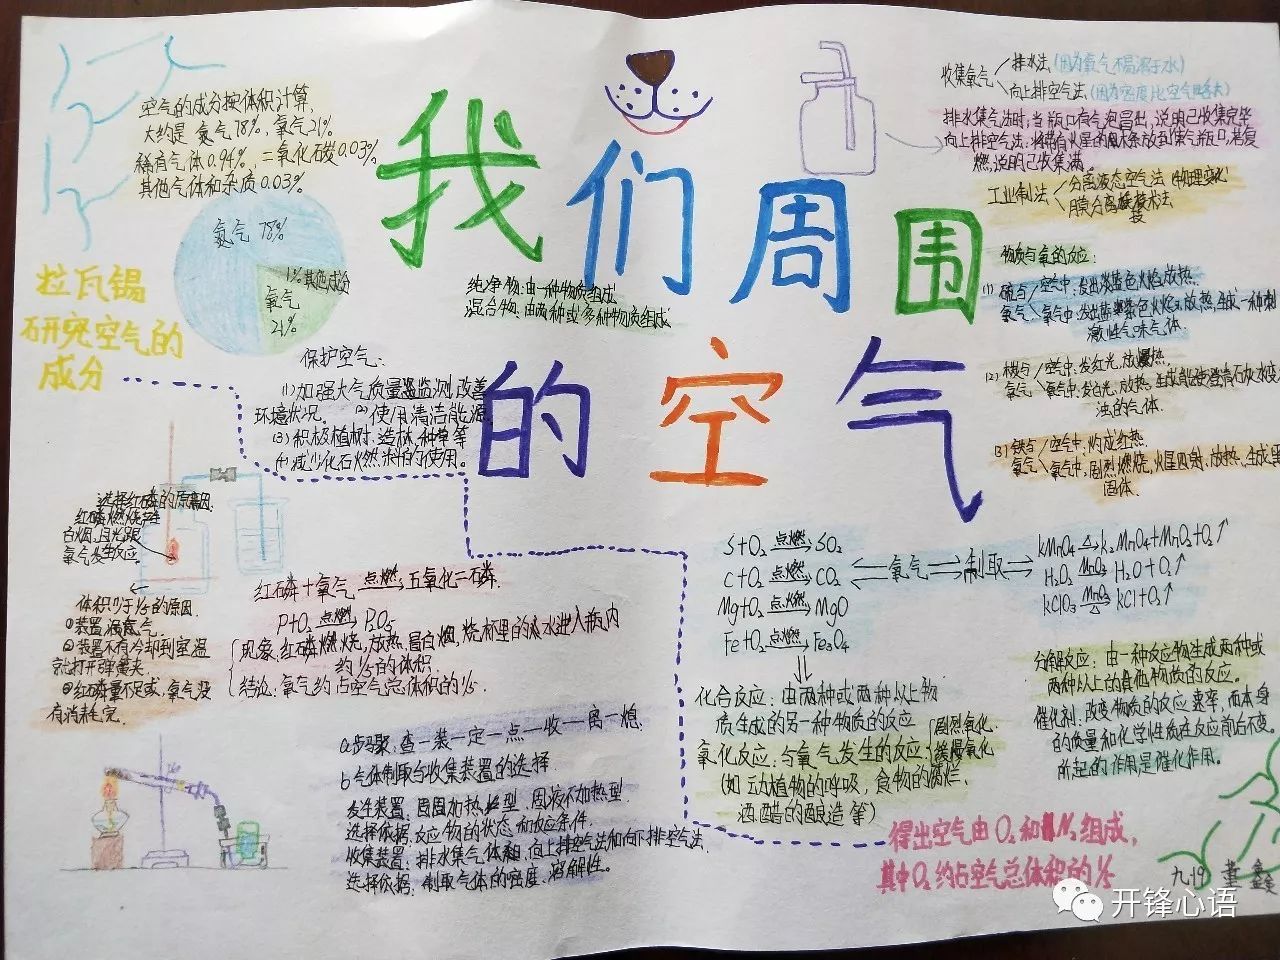 我们周围
的空气
空气的成分按体积计算,
大约是 氮气78%, 氧气21%
稀有气体0.94%, 二氧化碳0.03%
其他气体和杂质0.03%
氮气 78%
1%其他成分
氧气
21%
拉瓦锡
研究空气的
成分
纯净物:由一种物质组成
混合物:由两种或多种物质组成
保护空气:
(1)加强大气质量监测,改善
环境状况。 (2)使用清洁能源
(3)积极植树、造林、种草等
(4)减少化石燃料的使用。
收集氧气
排水法(因为氧气不易溶于水)
向上排空气法(因为密度比空气略大)
排水集气法时,当瓶口有气泡冒出,说明已收集完毕
向上排空气法,将带有火星的木条放到集气瓶口,若复
燃,说明已收集满。
工业制法
分离液态空气法 物理变化
膜分离技术法
物质与氧的反应:
(1) 硫与 空气中:发出淡蓝色火焰,放热
氧气 氧气中:发出蓝紫色火焰,放热,生成一种刺
激性气味气体.
(2) 碳与 空气中,发红光,放热.
氧气 氧气中,发白光,放热,生成能使澄清石灰水变
浊的气体.
(3) 铁与 空气中,灼成红热.
氧气 氧气中,剧烈燃烧,火星四射,放热,生成黑
固体.
选择红磷的原因:
红磷燃烧产生
白烟,且光跟
氧气发生反应.
体积小于1/5的原因
①装置漏气.
②装置不有冷却到室温
就打开弹簧夹
③红磷量不足或,氧气没
有消耗完.
红磷+氧气 点燃 五氧化二磷.
P+O₂ 点燃 P₂O₅
现象:红磷燃烧,放热,冒白烟,烧杯里的水进入瓶内
约1/5的体积.
结论:氧气约占空气总体积的1/5.
a步骤:查一装一定一点一收一离一熄.
b气体制取与收集装置的选择
发生装置:固固加热型.固液不加热型.
选择依据:反应物的状态和反应条件.
收集装置:排水集气体 向上排空气法和向下排空气法.
选择依据:制取气体的密度、溶解性。
S+O₂ 点燃 SO₂
C+O₂ 点燃 CO₂
Mg+O₂ 点燃 MgO
Fe+O₂ 点燃 Fe₃O₄
氧气
制取
KMnO₄ △ K₂MnO₄+MnO₂+O₂↑
H₂O₂ MnO₂ H₂O+O₂↑
KClO₃ MnO₂ △ KCl+O₂↑
化合反应:由两种或两种以上物
质生成的另一种物质的反应
氧化反应:与氧气发生的反应 剧烈氧化.
缓慢氧化
(如动植物的呼吸,食物的腐烂,
酒、醋的酿造等)
分解反应:由一种反应物生成两种或
两种以上的其他物质的反应。
催化剂:改变物质的反应速率,而本身
的质量和化学性质在反应前后不变。
所起的作用是催化作用。
得出空气由O₂和N₂组成,
其中O₂约占空气总体积的1/5
九.19 董鑫
开锋心语